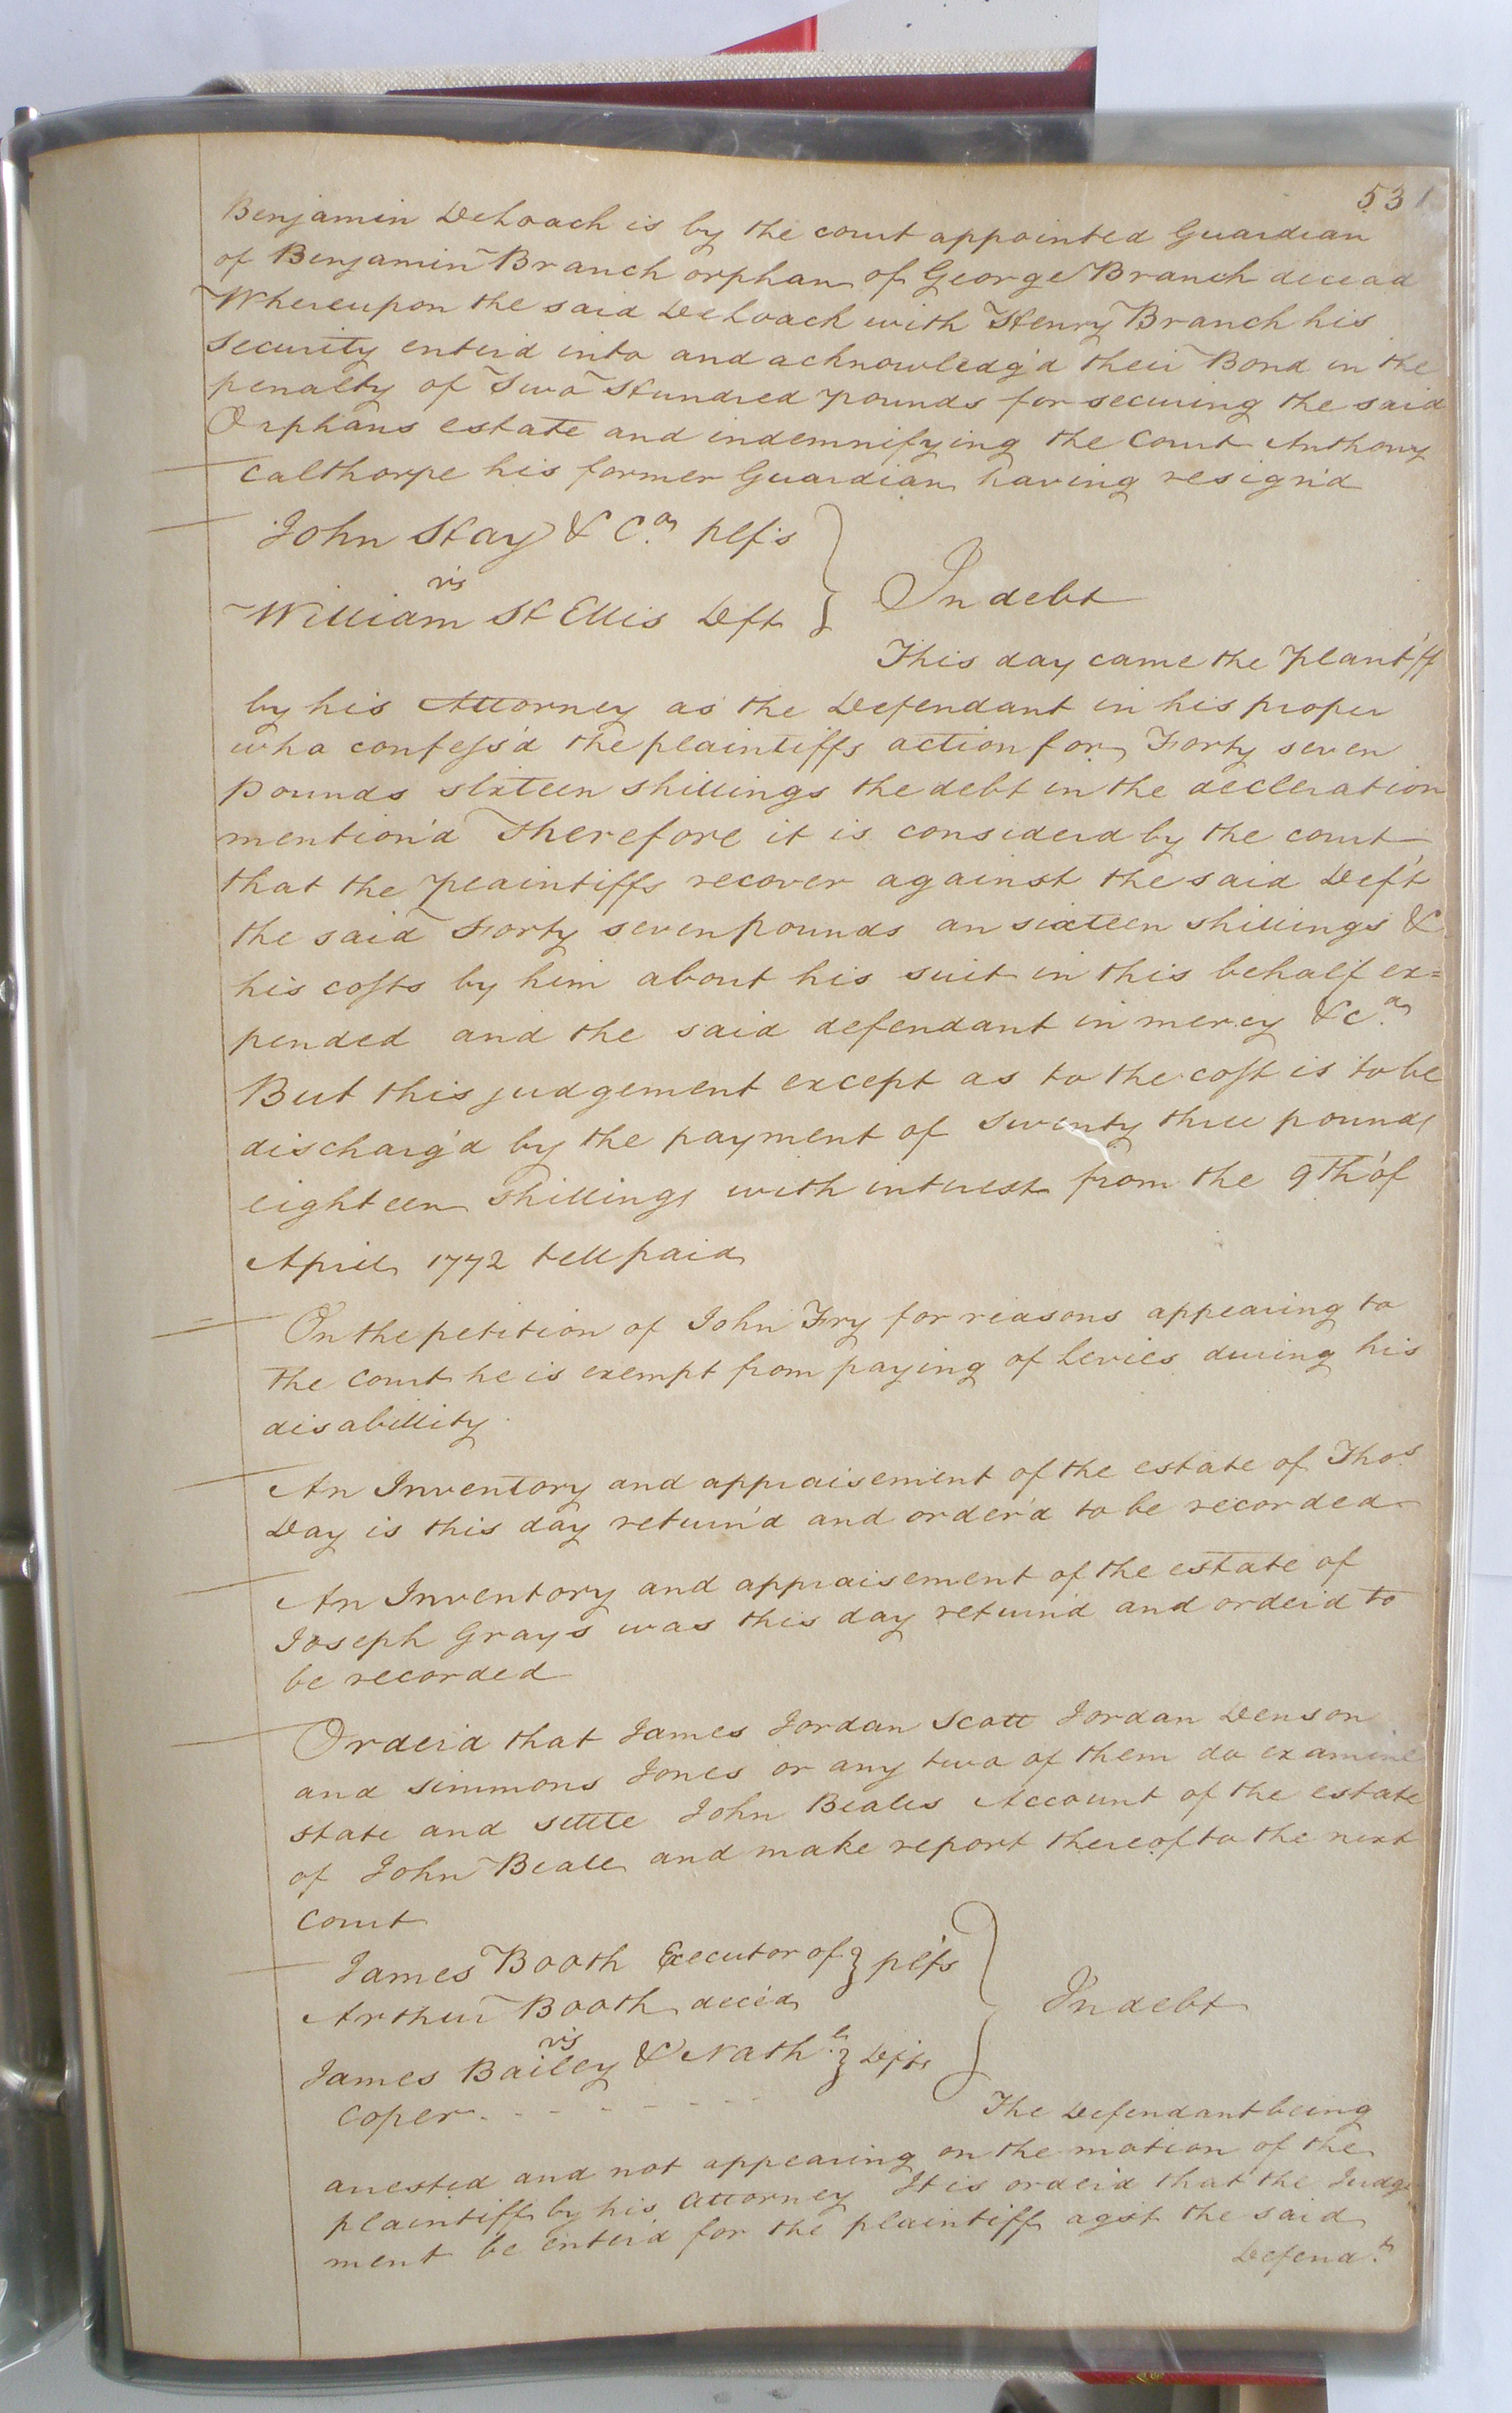 531
Benjamin DeLoach is by the court appointed Guardian
of Benjamin Branch orphan of George Branch decead
Whereupon the said DeLoach with Henry Branch his
Security enterd into and acknowledg'd their Bond in the
penalty of Two Hundred pounds for securing the said
Orphans estate and indemnifying the Court Anthony
Calthorpe his former Guardian having resign'd
John Hay & Co. plfs
vs
William H Ellis Deft
In debt
This day came the plant'ff
by his Attorney as the Defendant in his proper
who confess'd the plaintiffs action for Forty seven
pounds sixteen shillings the debt in the decleration
mention'd Therefore it is considerd by the court
that the plaintiffs recover against the said Def't
the said Forty seven pounds an sixteen shillings &
his costs by him about his suit in this behalf ex=
pended and the said defendant in mercy &ca.
But this judgement except as to the cost is to be
discharg'd by the payment of Twenty three pounds
eighteen shillings with interest from the 9th of
April 1772 till paid
On the petition of John Fry for reasons appearing to
the court he is exempt from paying of Levies during his
disabillity.
An Inventory and appraisement of the estate of Thos.
Day is this day return'd and order'd to be recorded
An Inventory and appraisement of the estate of
Joseph Grays was this day return'd and orderd to
be recorded
Orderd that James Jordan Scott Jordan Denson
and Simmons Jones or any two of them do examine
state and settle John Beales Account of the estate
of John Beale and make report thereof to the next
Court
James Booth Executor of } plfs
Arthur Booth dec'd
vs
James Bailey & Nathl. } Dfts
Coper - - - - - -
In debt
The Defendant being
arrested and not appearing on the motion of the
plaintiff by his Attorney It is order'd that the Judge
ment be enterd for the plaintiff agst the said
Defendt.